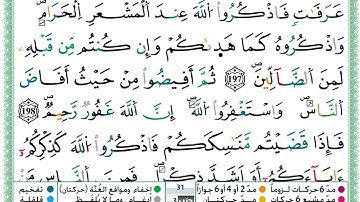 عَرَفَٰتٍ فَٱذْكُرُوا۟ ٱللَّهَ عِندَ ٱلْمَشْعَرِ ٱلْحَرَامِ ۖ
وَٱذْكُرُوهُ كَمَا هَدَىٰكُمْ وَإِن كُنتُم مِّن قَبْلِهِۦ
لَمِنَ ٱلضَّآلِّينَ ۝١٩٨ ثُمَّ أَفِيضُوا۟ مِنْ حَيْثُ أَفَاضَ
ٱلنَّاسُ وَٱسْتَغْفِرُوا۟ ٱللَّهَ ۚ إِنَّ ٱللَّهَ غَفُورٌ رَّحِيمٌ
فَإِذَا قَضَيْتُم مَّنَٰسِكَكُمْ فَٱذْكُرُوا۟ ٱللَّهَ كَذِكْرِكُمْ
ءَابَآءَكُمْ أَوْ أَشَدَّ ذِكْرًا ۗ فَمِنَ ٱلنَّاسِ مَن
مدّ 6 حركات لزوماً مدّ 2 أو 4 أو 6 جوازاً 31 إخفاء ومواقع الغُنَّة (حركتان) تفخيم
مدّ مشبع 6 حركات مدّ حركتان إدغام، وما لا يُلفظ قلقلة